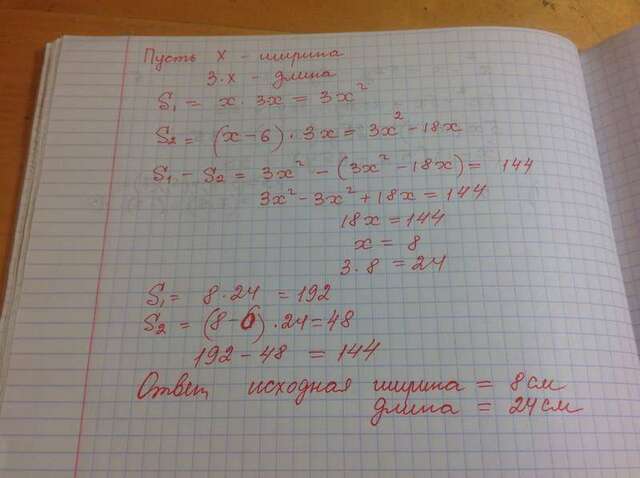 Пусть x - ширина
3·x - длина
S₁ = x · 3x = 3x²
S₂ = (x-6) · 3x = 3x² - 18x
S₁ - S₂ = 3x² - (3x² - 18x) = 144
3x² - 3x² + 18x = 144
18x = 144
x = 8
3 · 8 = 24
S₁ = 8 · 24 = 192
S₂ = (8-6) · 24 = 48
192 - 48 = 144
Ответ исходная ширина = 8 см
длина = 24 см